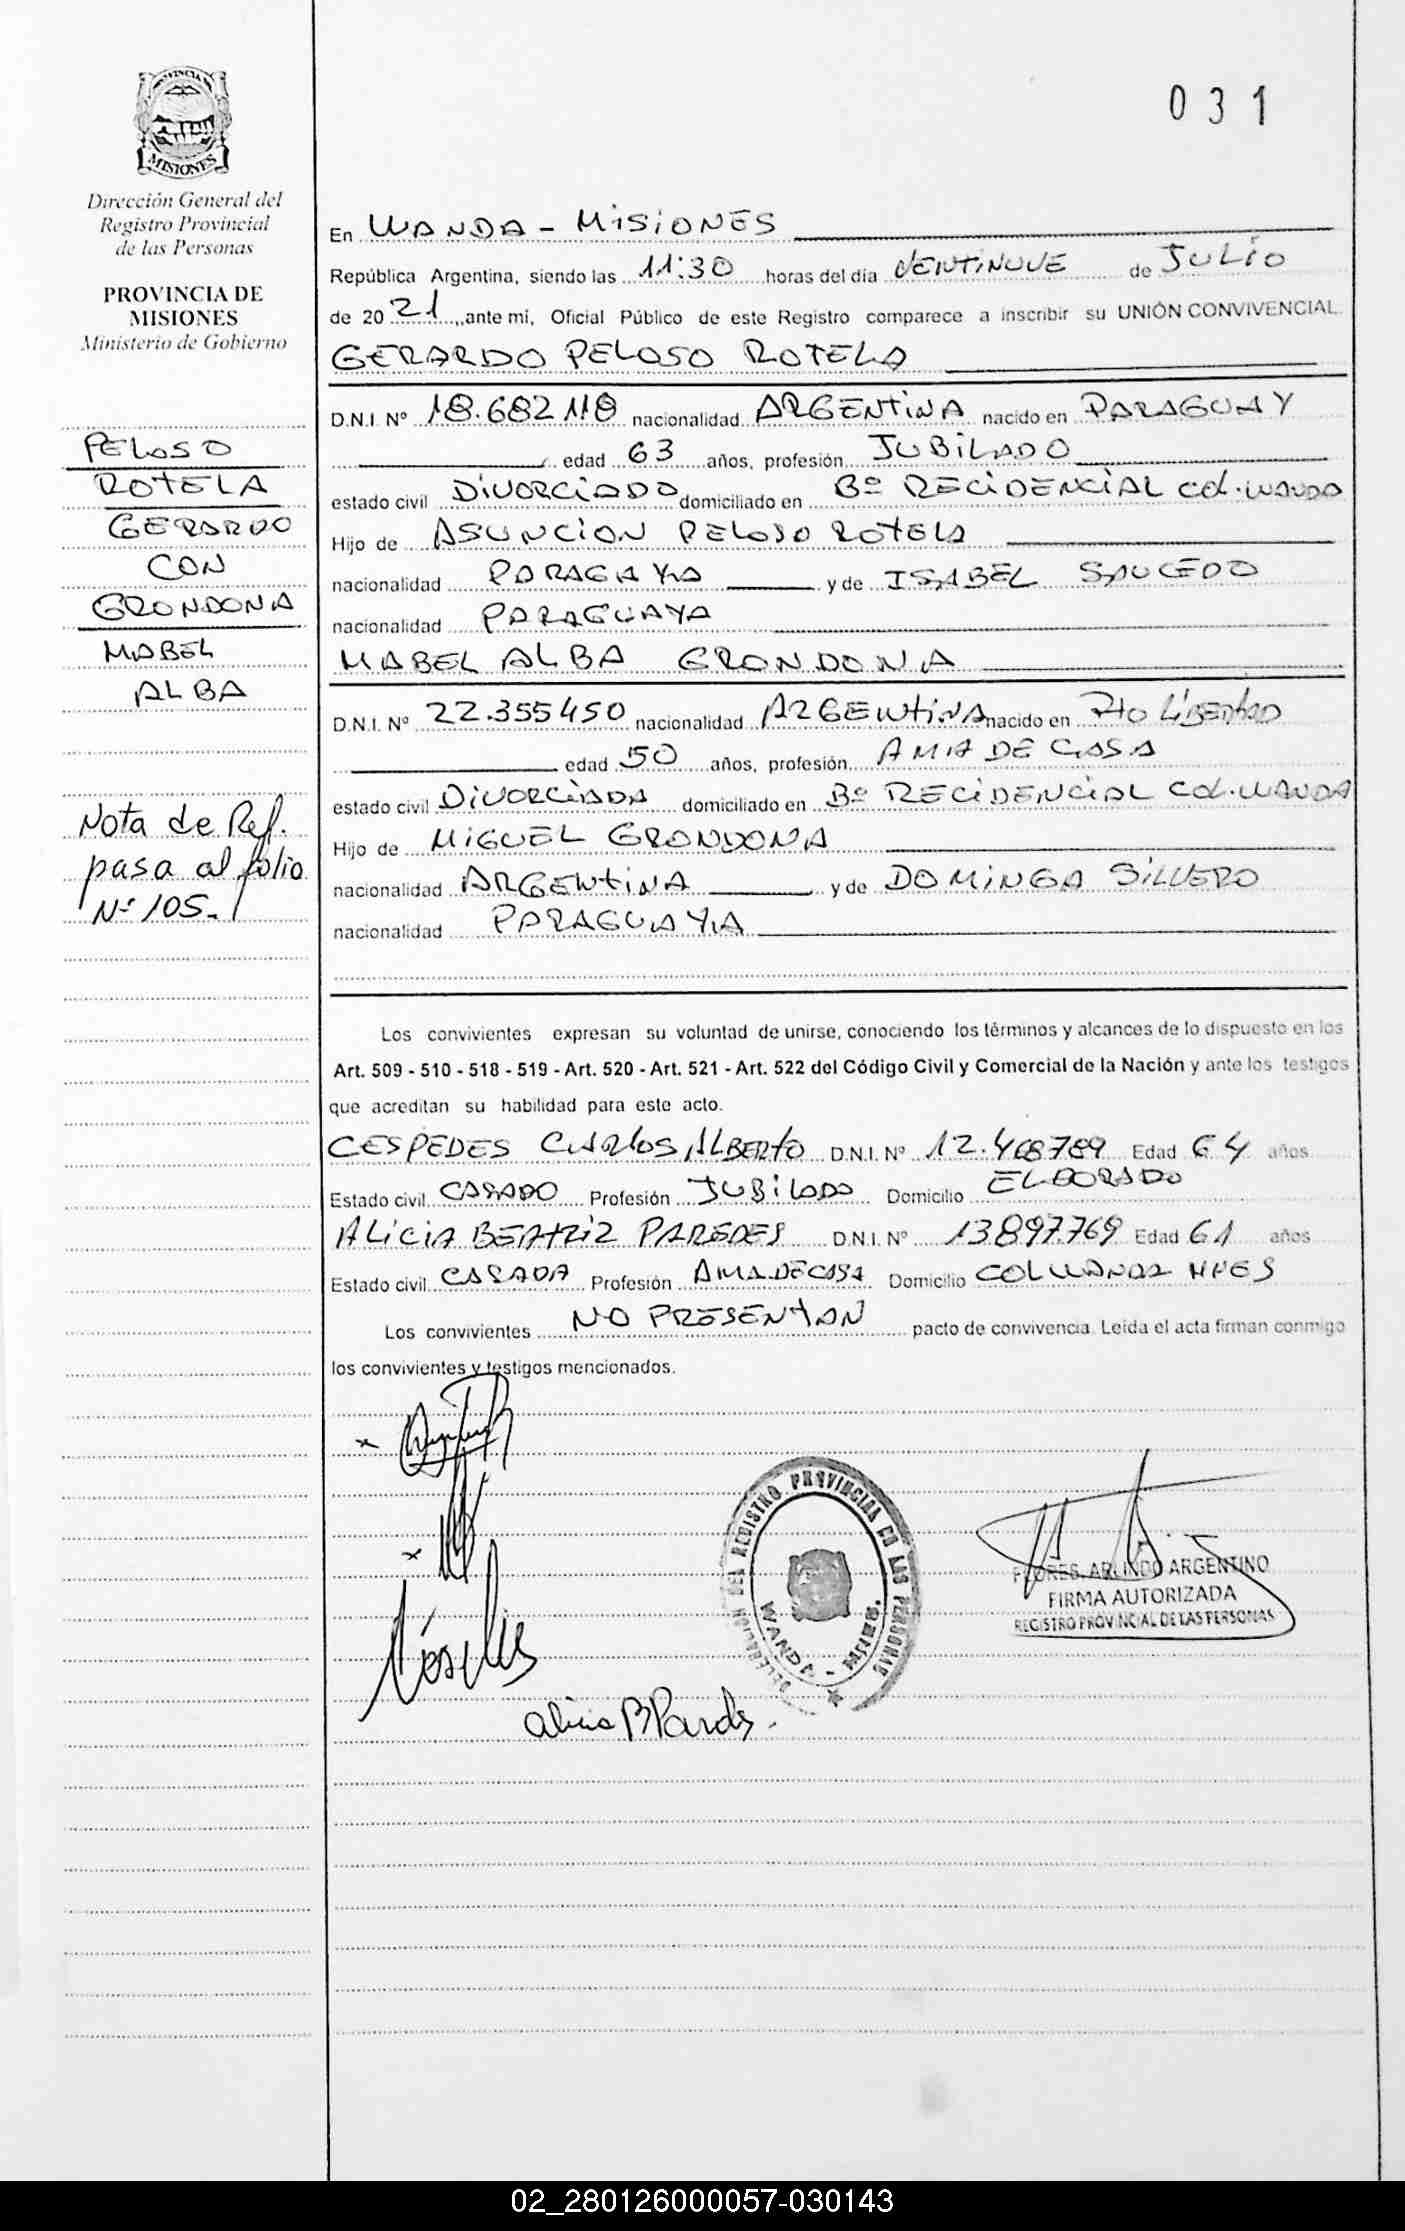 PROVINCIA DE
MISIONES
Dirección General del
Registro Provincial
de las Personas
PROVINCIA DE
MISIONES
Ministerio de Gobierno
PELOSO
ROTELA
GERARDO
CON
GRONDONA
MABEL
ALBA
Nota de Ref.
pasa al folio
Nº 105.
031
En WANDA - MISIONES
República Argentina, siendo las 11:30 horas del día VEINTINUVE de JULIO
de 2021, ante mí, Oficial Público de este Registro comparece a inscribir su UNIÓN CONVIVENCIAL.
GERARDO PELOSO ROTELA
D.N.I. Nº 18.682.118 nacionalidad ARGENTINA nacido en PARAGUAY
edad 63 años, profesión JUBILADO
estado civil DIVORCIADO domiciliado en Bº RECIDENCIAL COL. WANDA
Hijo de ASUNCION PELOSO ROTELA
nacionalidad PARAGAYA y de ISABEL SAUCEDO
nacionalidad PARAGUAYA
MABEL ALBA GRONDONA
D.N.I. Nº 22.355450 nacionalidad ARGENTINA nacido en PTO LIBERTAD
edad 50 años, profesión AMA DE CASA
estado civil DIVORCIADA domiciliado en Bº RECIDENCIAL COL. WANDA
Hijo de MIGUEL GRONDONA
nacionalidad ARGENTINA y de DOMINGA SILVERO
nacionalidad PARAGUAYA
Los convivientes expresan su voluntad de unirse, conociendo los términos y alcances de lo dispuesto en los
Art. 509 - 510 - 518 - 519 - Art. 520 - Art. 521 - Art. 522 del Código Civil y Comercial de la Nación y ante los testigos
que acreditan su habilidad para este acto.
CESPEDES CARLOS ALBERTO D.N.I. Nº 12.468789 Edad 64 años
Estado civil CASADO Profesión JUBILADO Domicilio ELDORADO
ALICIA BEATRIZ PAREDES D.N.I. Nº 13897.769 Edad 61 años
Estado civil CASADA Profesión AMA DE CASA Domicilio COL WANDA MNES
Los convivientes NO PRESENTAN pacto de convivencia. Leída el acta firman conmigo
los convivientes y testigos mencionados.
DELEGACION DEL REGISTRO PROVINCIAL DE LAS PERSONAS
WANDA - MNES.
FLORES, ARLINDO ARGENTINO
FIRMA AUTORIZADA
REGISTRO PROVINCIAL DE LAS PERSONAS
02_280126000057-030143